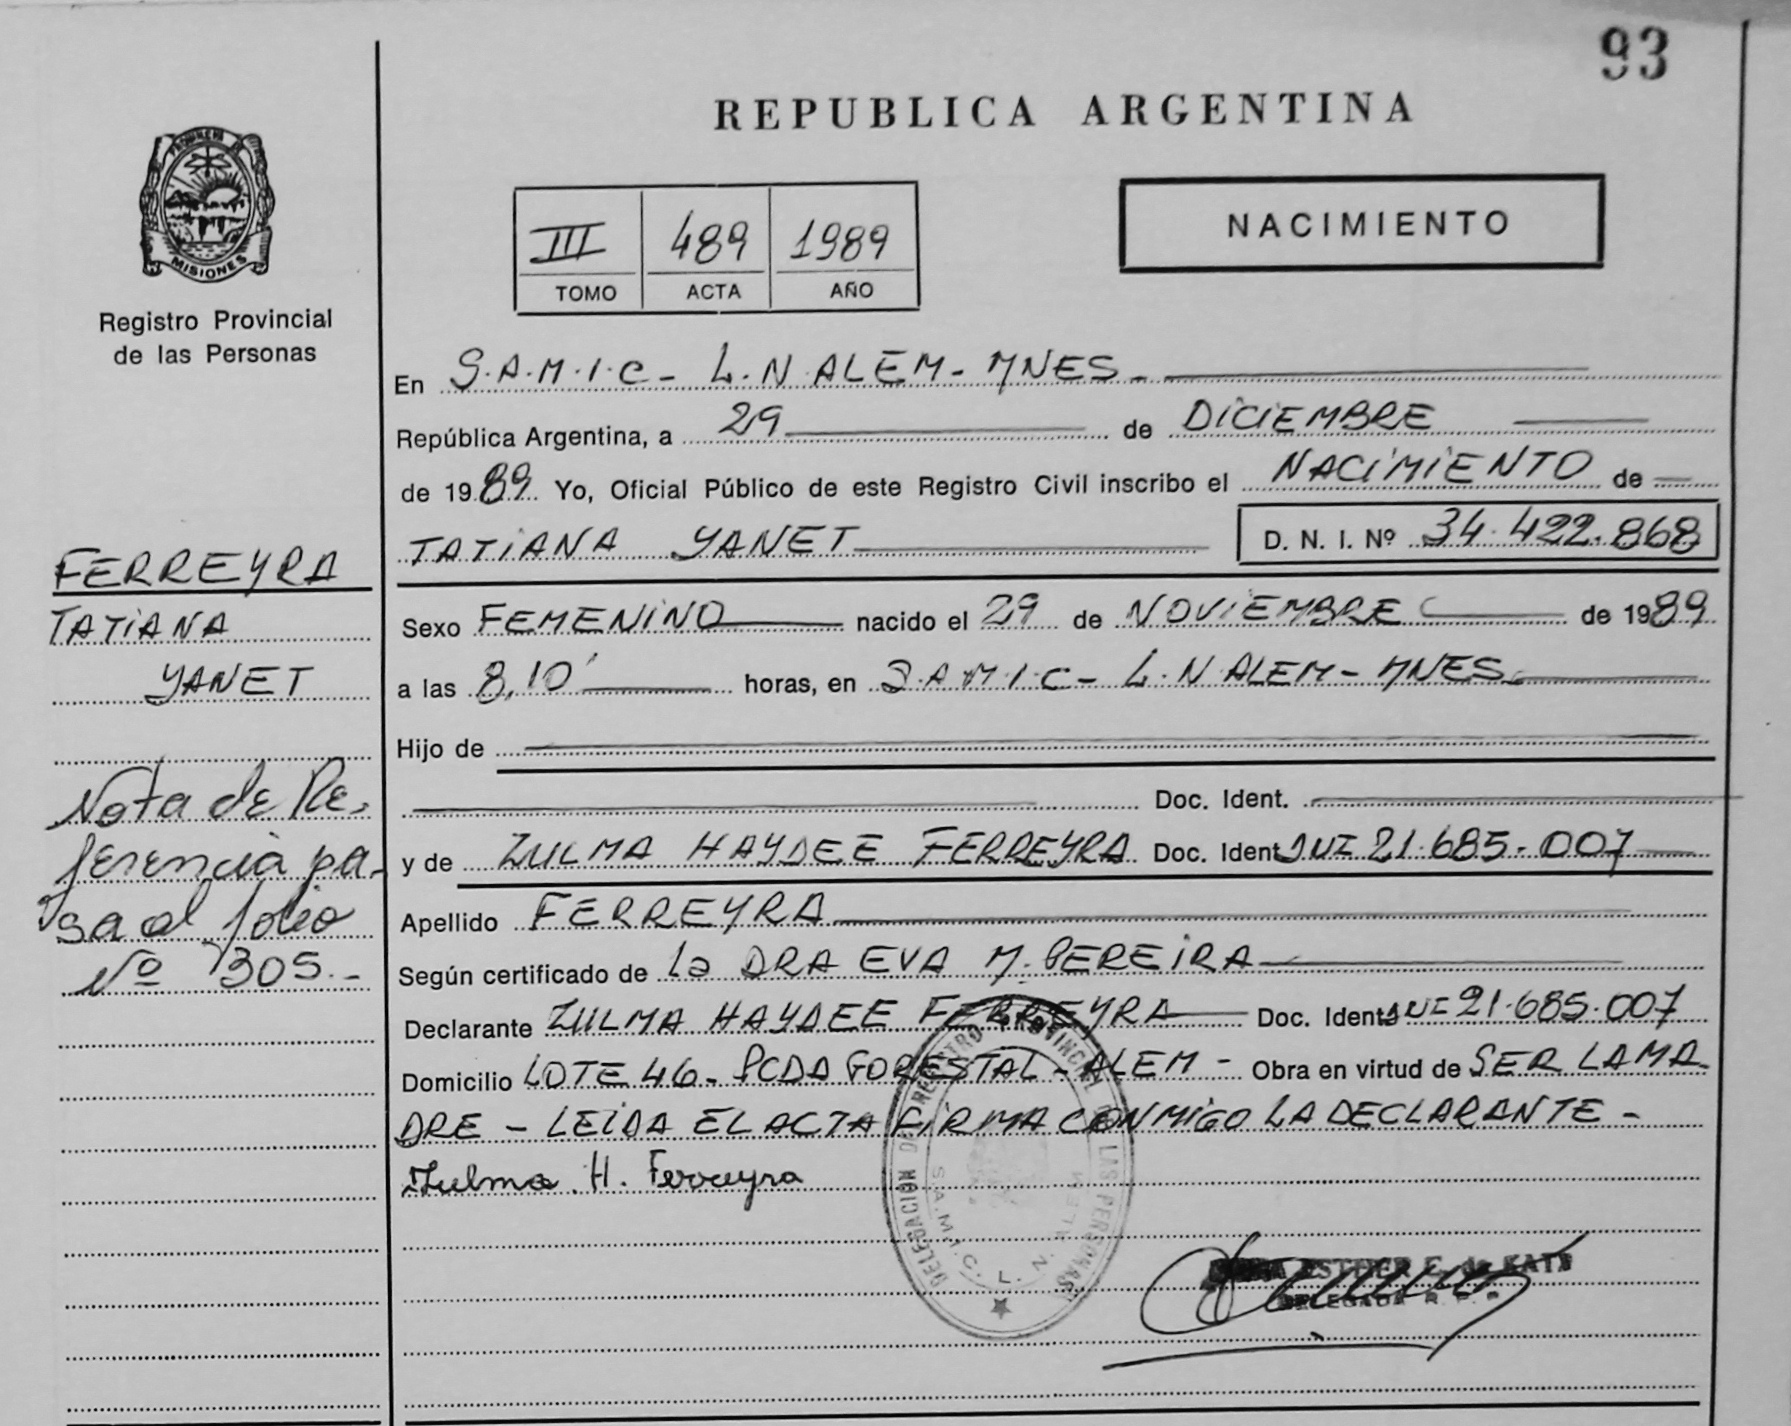 93
REPUBLICA ARGENTINA
MISIONES
Registro Provincial
de las Personas
III 489 1989
TOMO ACTA AÑO
NACIMIENTO
En S.A.M.I.C - L.N ALEM - MNES -
República Argentina, a 29 de DICIEMBRE
de 1989 Yo, Oficial Público de este Registro Civil inscribo el NACIMIENTO de
TATIANA YANET D. N. I. Nº 34.422.868
FERREYRA
TATIANA
YANET
Sexo FEMENINO nacido el 29 de NOVIEMBRE de 1989
a las 8,10' horas, en S.A.M.I.C - L.N ALEM - MNES.
Hijo de
Doc. Ident.
y de ZULMA HAYDEE FERREYRA Doc. Ident 21.685.007
Apellido FERREYRA
Según certificado de La DRA EVA M. PEREIRA
Declarante ZULMA HAYDEE FERREYRA Doc. Ident 21.685.007
Domicilio LOTE 46 - PCDA FORESTAL - ALEM - Obra en virtud de SER LA MA
DRE - LEIDA EL ACTA FIRMA CONMIGO LA DECLARANTE -
Zulma H. Ferreyra
Nota de Re-
ferencia pa-
sa al folio
Nº 305.-
DELEGACION DEL REGISTRO PROVINCIAL DE LAS PERSONAS
S.A.M.I.C. L. N. ALEM
ESTHER E. de KATZ
DELEGADA R. P. P.